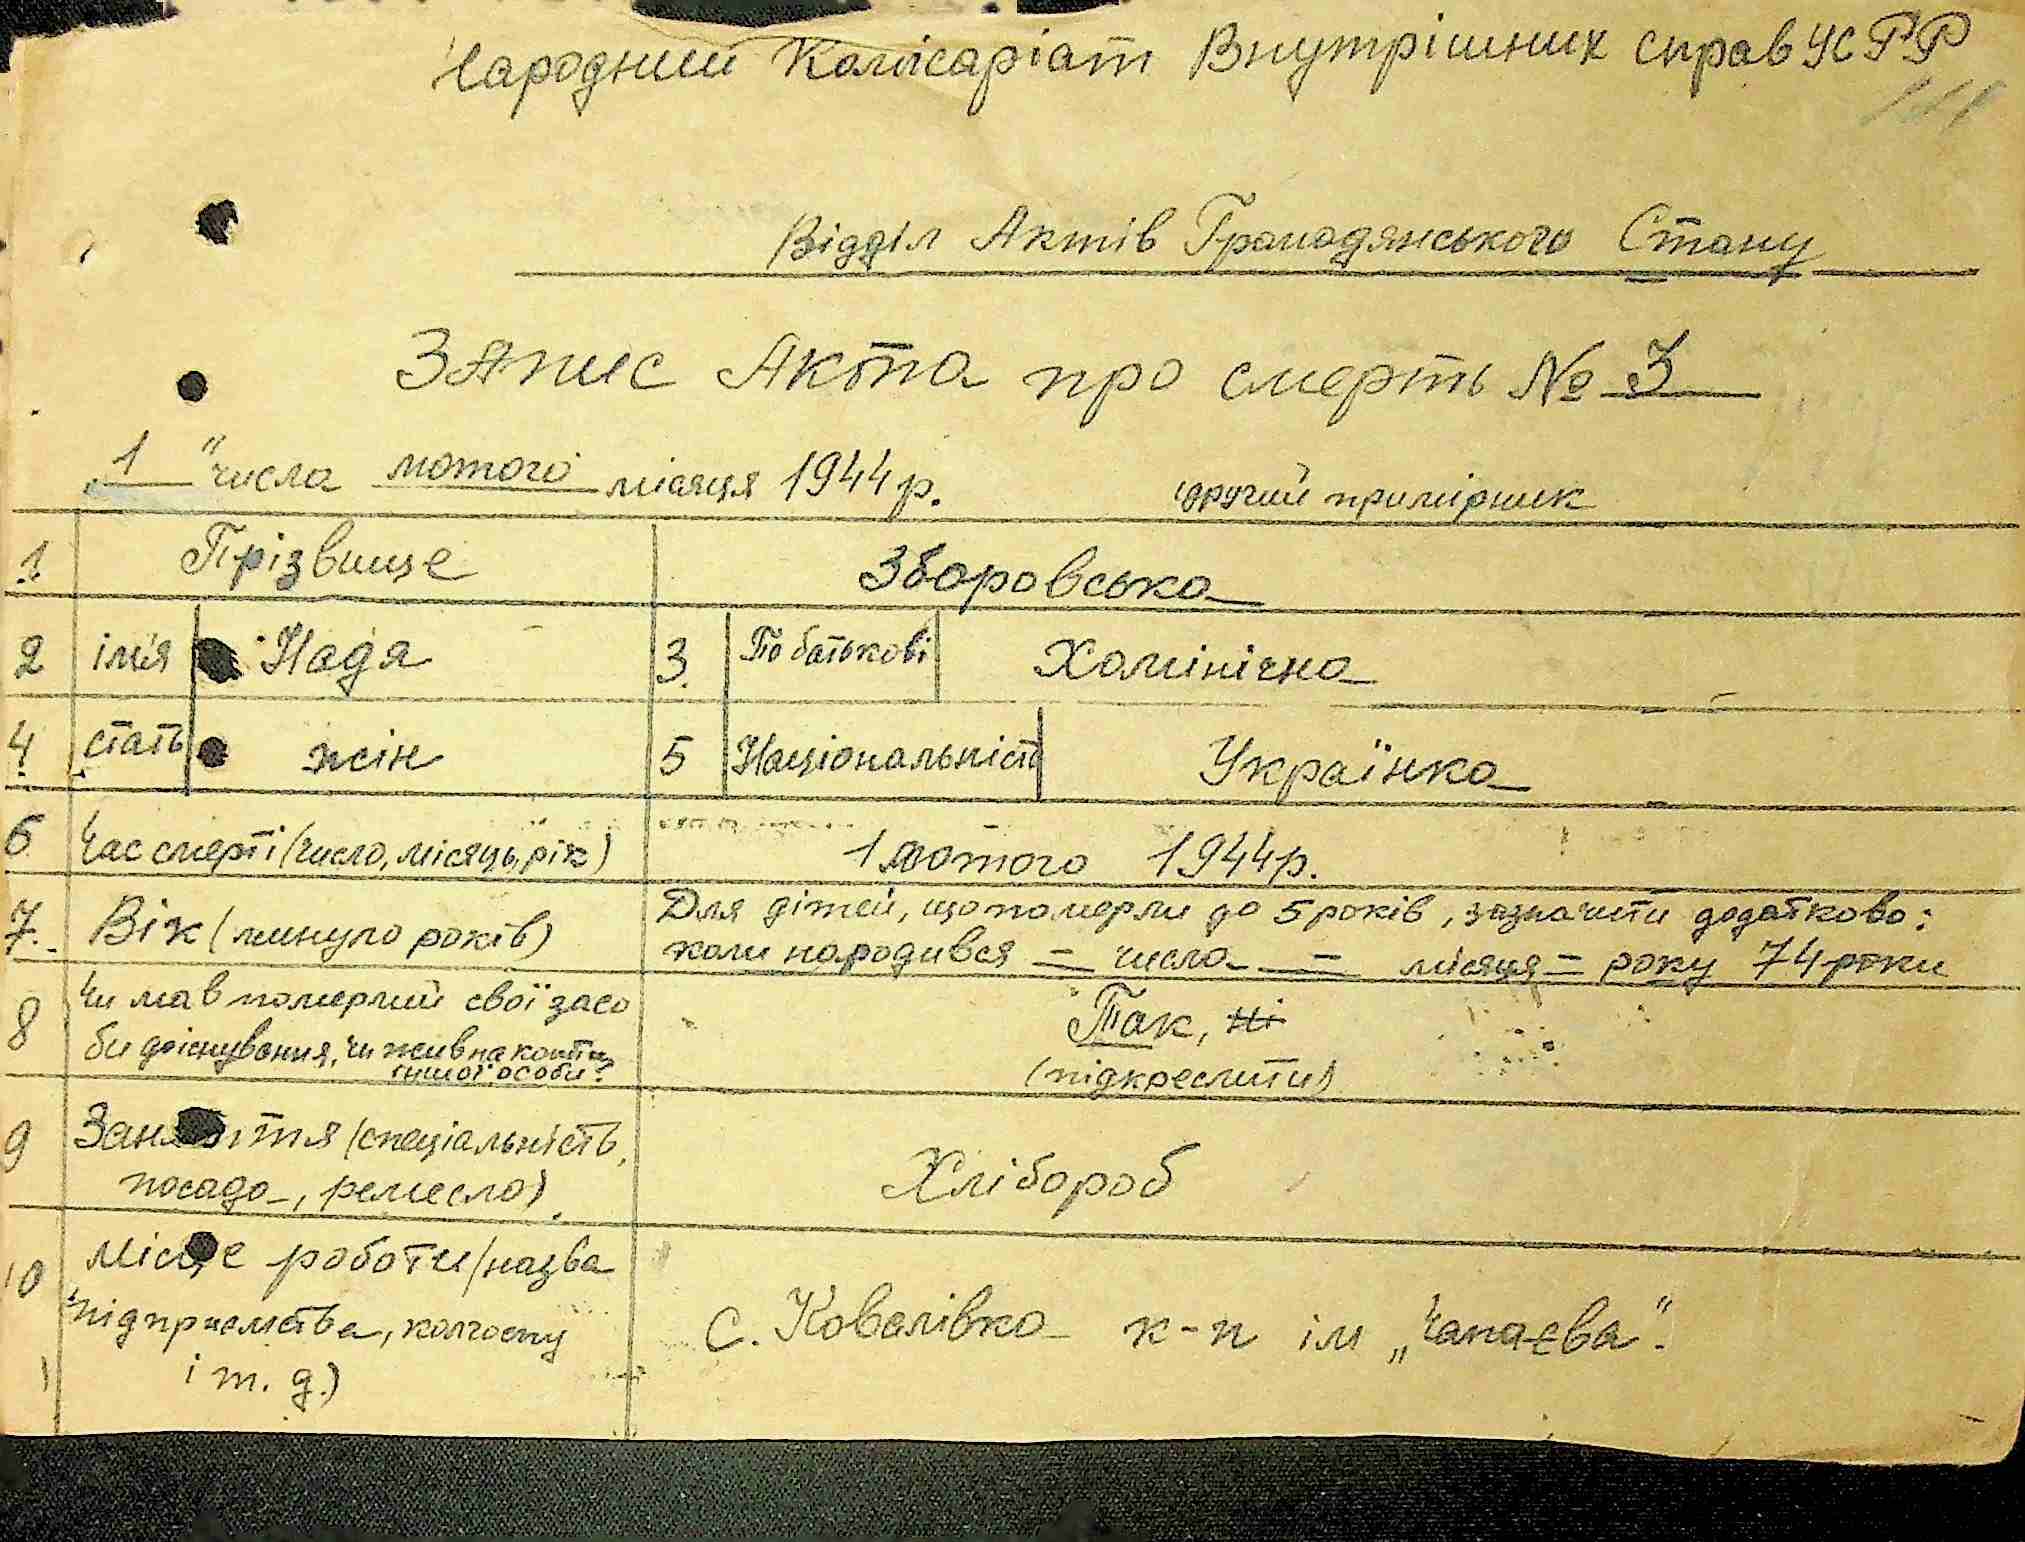 Народний Комісаріат Внутрішних справ УСРР
Відділ Актів Громадянського Стану
Запис Акта про смерть № 3
"1" числа лютого місяця 1944 р.
другий примірник
1. Прізвище Зборовська
2 ім'я Надя 3. По батькові Хомінічна
4. стать жін 5 Національність Українка
6 Час смерті (число, місяць, рік) 1 лютого 1944р.
7. Вік (минуло років) Для дітей, що померли до 5 років, зазначити додатково:
коли народився = число = місяця = року 74 роки
8 Чи мав померлий свої засо
би до існування, чи жив на кошти
іншої особи?
Так, ні
(підкреслити)
9 Заняття (спеціальність,
посада, ремесло).
Хлібороб
10 Місце роботи (назва
підприємства, колгоспу
і т. д.)
с. Ковалівка к-п ім „Чапаєва".